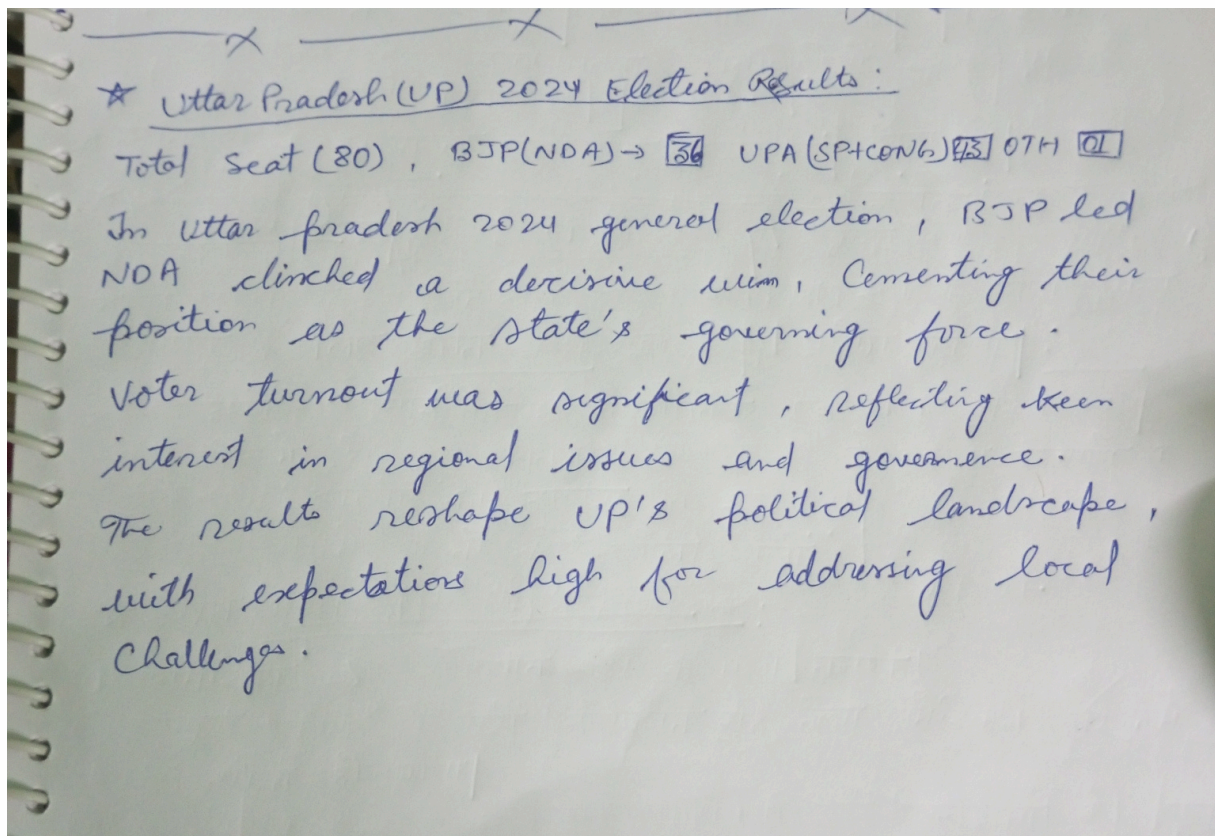 ☆ Uttar Pradesh (UP) 2024 Election Results:
Total Seat (80), BJP(NDA)→ 36 UPA (SP+CONG) 43 OTH 01
In Uttar pradesh 2024 general election, BJP led
NDA clinched a decisive win, Cementing their
position as the state's governing force.
Voter turnout was significant, reflecting keen
interest in regional issues and governence.
The results reshape UP's political landscape,
with expectations high for addressing local
Challenges.